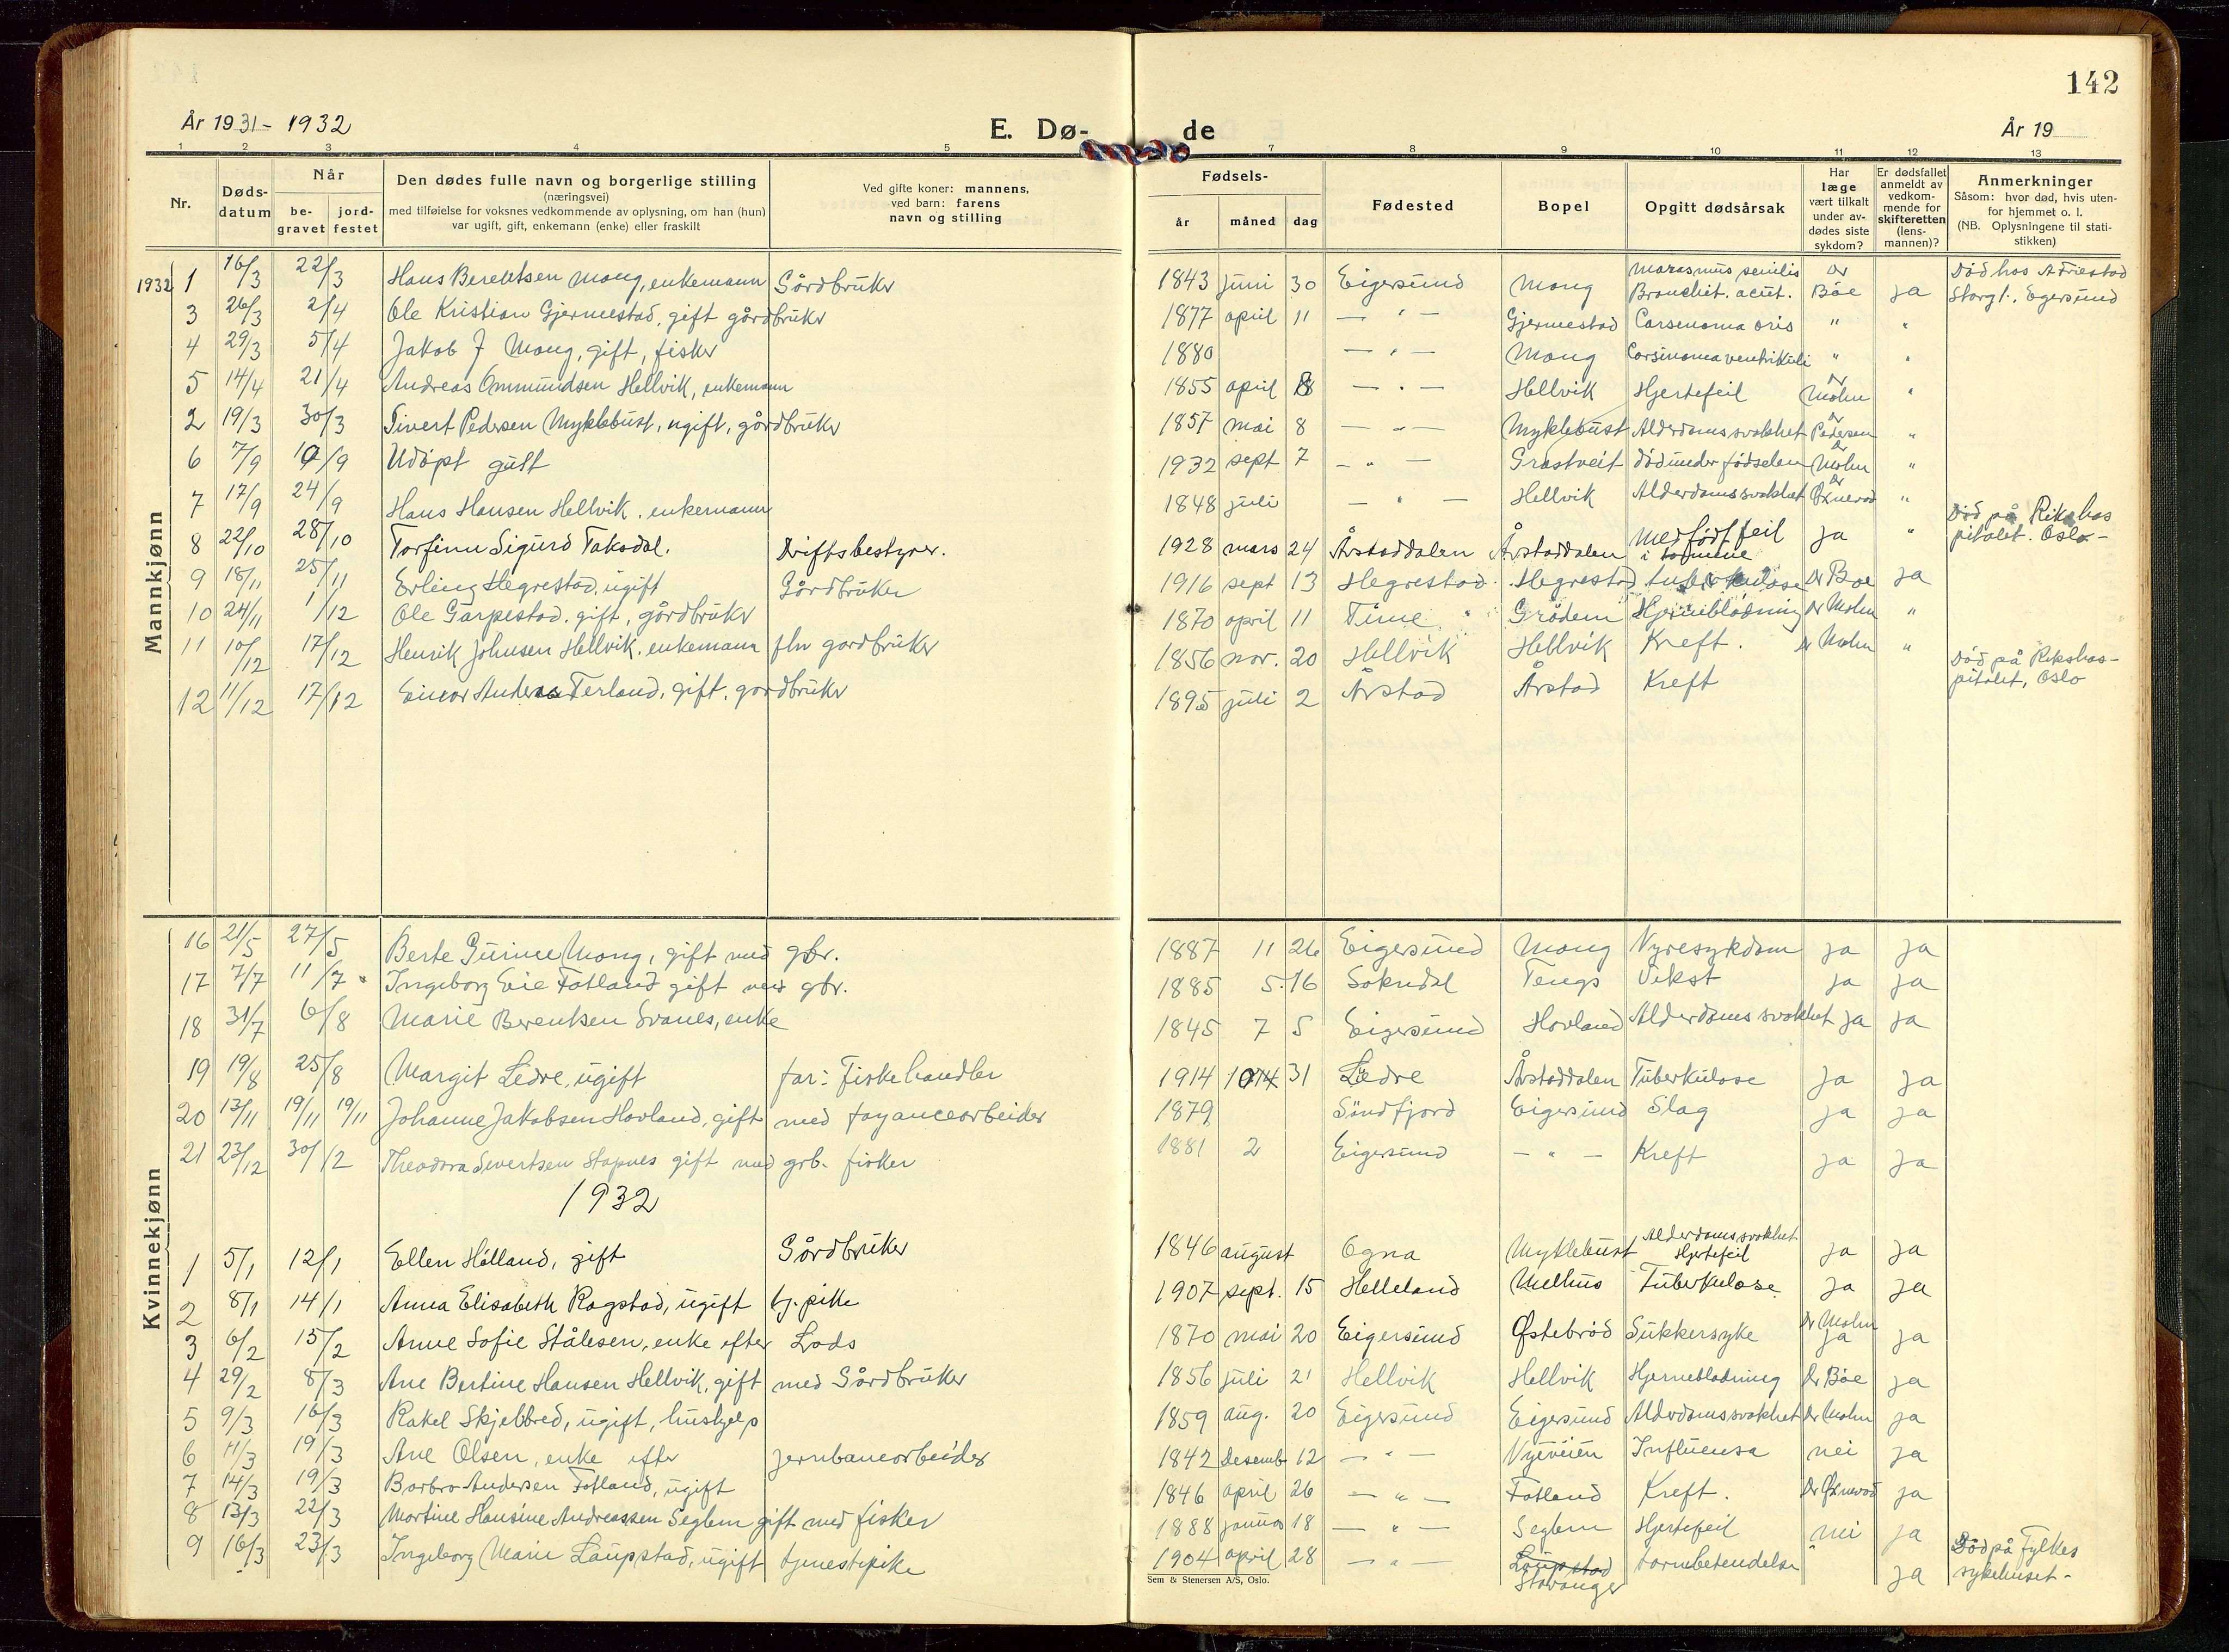 142
År 1931- 1932
E. Dø- de
År 19
1 2 3 4 5 7 8 9 10 11 12 13
Nr.
Døds-
datum
Når
be-
gravet
jord-
festet
Den dødes fulle navn og borgerlige stilling
(næringsvei)
med tilføielse for voksnes vedkommende av oplysning, om han (hun)
var ugift, gift, enkemann (enke) eller fraskilt
Ved gifte koner: mannens,
ved barn: farens
navn og stilling
Fødsels-
år måned dag
Fødested
Bopel
Opgitt dødsårsak
Har
læge
vært tilkalt
under av-
dødes siste
sykdom?
Er dødsfallet
anmeldt av
vedkom-
mende for
skifteretten
(lens-
mannen)?
Anmerkninger
Såsom: hvor død, hvis uten-
for hjemmet o. l.
(NB. Oplysningene til stati-
stikken)
Mannkjønn
1932 1 16/3 22/3 Hans Berentsen Mong, enkemann Gårdbruker 1843 juni 30 Eigersund Mong Marasmus senilis Bronchit. acut. Dr Bøe ja Død hos A Friestad Storgt., Egersund
3 26/3 2/4 Ole Kristian Gjermestad, gift gårdbruker 1877 april 11 — " — Gjermestad Carsenoma oris " "
4 29/3 5/4 Jakob J Mong, gift, fisker 1880 — " — Mong Carsinoma ventrikuli " "
5 14/4 21/4 Andreas Ommundsen Hellvik, enkemann 1855 april 8 — " — Hellvik Hjertefeil Dr Molm "
2 19/3 30/3 Sivert Pedersen Myklebust, ugift, gårdbruker 1857 mai 8 — " — Myklebust Alderdomssvakhet Dr Pedersen "
6 7/9 10/9 Udøpt gutt 1932 sept 7 — " — Grastveit død under fødselen Dr Molm "
7 17/9 24/9 Hans Hansen Hellvik, enkemann 1848 juli — " — Hellvik Alderdomssvakhet Dr Øxnevad "
8 22/10 28/10 Torfinn Sigurd Taksdal. Driftsbestyrer. 1928 mars 24 Årstaddalen Årstaddalen Medfødt feil i tarmene ja " Død på Rikshospitalet. Oslo-
9 18/11 25/11 Erling Hegrestad, ugift Gårdbruker 1916 sept 13 Hegrestad Hegrestad tuberkulose Dr Bøe ja
10 24/11 1/12 Ole Garpestad, gift, gårdbruker 1870 april 11 Time Grødem Hjerneblødning Dr Molm "
11 10/12 17/12 Henrik Johnsen Hellvik, enkemann fhv gardbruker 1856 nov. 20 Hellvik Hellvik Kreft. Dr Molm "
12 11/12 17/12 Einar Andreas Terland, gift, gardbruker 1895 juli 2 Årstad Årstad Kreft Død på Rikshospitalet, Oslo
Kvinnekjønn
16 21/5 27/5 Berte Gurine Mong, gift med gbr. 1887 11 26 Eigersund Mong Nyresykdom ja ja
17 7/7 11/7 Ingeborg Eie Fotland gift med gbr. 1885 5. 16 Sokndal Tengs Vekst ja ja
18 31/7 6/8 Marie Berentsen Svanes, enke 1845 7 5 Eigersund Hovland Alderdomssvakhet ja ja
19 19/8 25/8 Margit Ledre, ugift far: Fiskehandler 1914 10 31 Ledre Årstaddalen Tuberkulose ja ja
20 13/11 19/11 19/11 Johanne Jakobsen Hovland, gift med fayancearbeider 1879 Søndfjord Eigersund Slag ja ja
21 23/12 30/12 Theodora Sivertsen Stapnes gift med grb. fisker 1881 2 Eigersund — " — Kreft ja ja
1932
1 5/1 12/1 Ellen Hålland, gift Gårdbruker 1846 august Ogna Myklebust Alderdomssvakhet Hjertefeil ja ja
2 8/1 14/1 Anna Elisabeth Ragstad, ugift tj. pike 1907 sept. 15 Helleland Melhus Tuberkulose ja ja
3 6/2 15/2 Anne Sofie Stålesen, enke efter Lods 1870 mai 20 Eigersund Østebrød Sukkersyke Dr Molm ja ja
4 29/2 8/3 Ane Bertine Hansen Hellvik, gift med Gårdbruker 1856 juli 21 Hellvik Hellvik Hjerneblødning Dr Bøe ja
5 9/3 16/3 Rakel Skjelbred, ugift, hushjelp 1859 aug. 20 Eigersund Eigersund Alderdomssvakhet Dr Molm ja
6 11/3 19/3 Ane Olsen, enke efter jernbanearbeider 1842 Desemb 12 — " — Nyeveien Influensa nei ja
7 14/3 19/3 Barbro Andersen Fotland, ugift 1846 april 26 — " — Fotland Kreft. Dr Øxnevad ja
8 13/3 22/3 Martine Hansine Andreassen Seglem gift med fisker 1888 januar 18 — " — Seglem Hjertefeil nei ja
9 16/3 23/3 Ingeborg Marie Laupstad, ugift tjenestpike 1904 april 28 — " — Laupstad Stavanger tarmbetendelse " ja Død på Fylkessykehuset-
Sem & Stenersen A/S, Oslo.